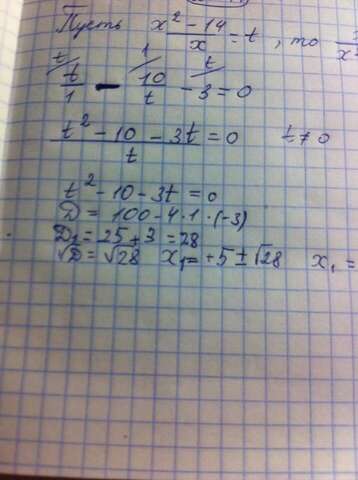 Пусть (x² - 14)/x = t, то
t/1 - 10/t - 3 = 0
(t² - 10 - 3t)/t = 0 t ≠ 0
t² - 10 - 3t = 0
D = 100 - 4·1·(-3)
D₁ = 25 + 3 = 28
√D = √28 x₁ = +5 ± √28 x₁ =